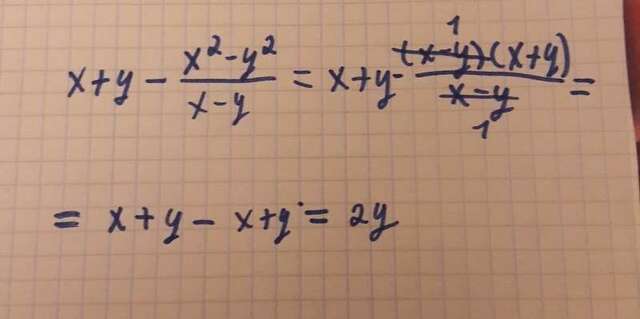 x+y - \frac{x^2-y^2}{x-y} = x+y - \frac{\overset{1}{\cancel{(x-y)}}(x+y)}{\underset{1}{\cancel{x-y}}} =
= x+y - x+y = 2y